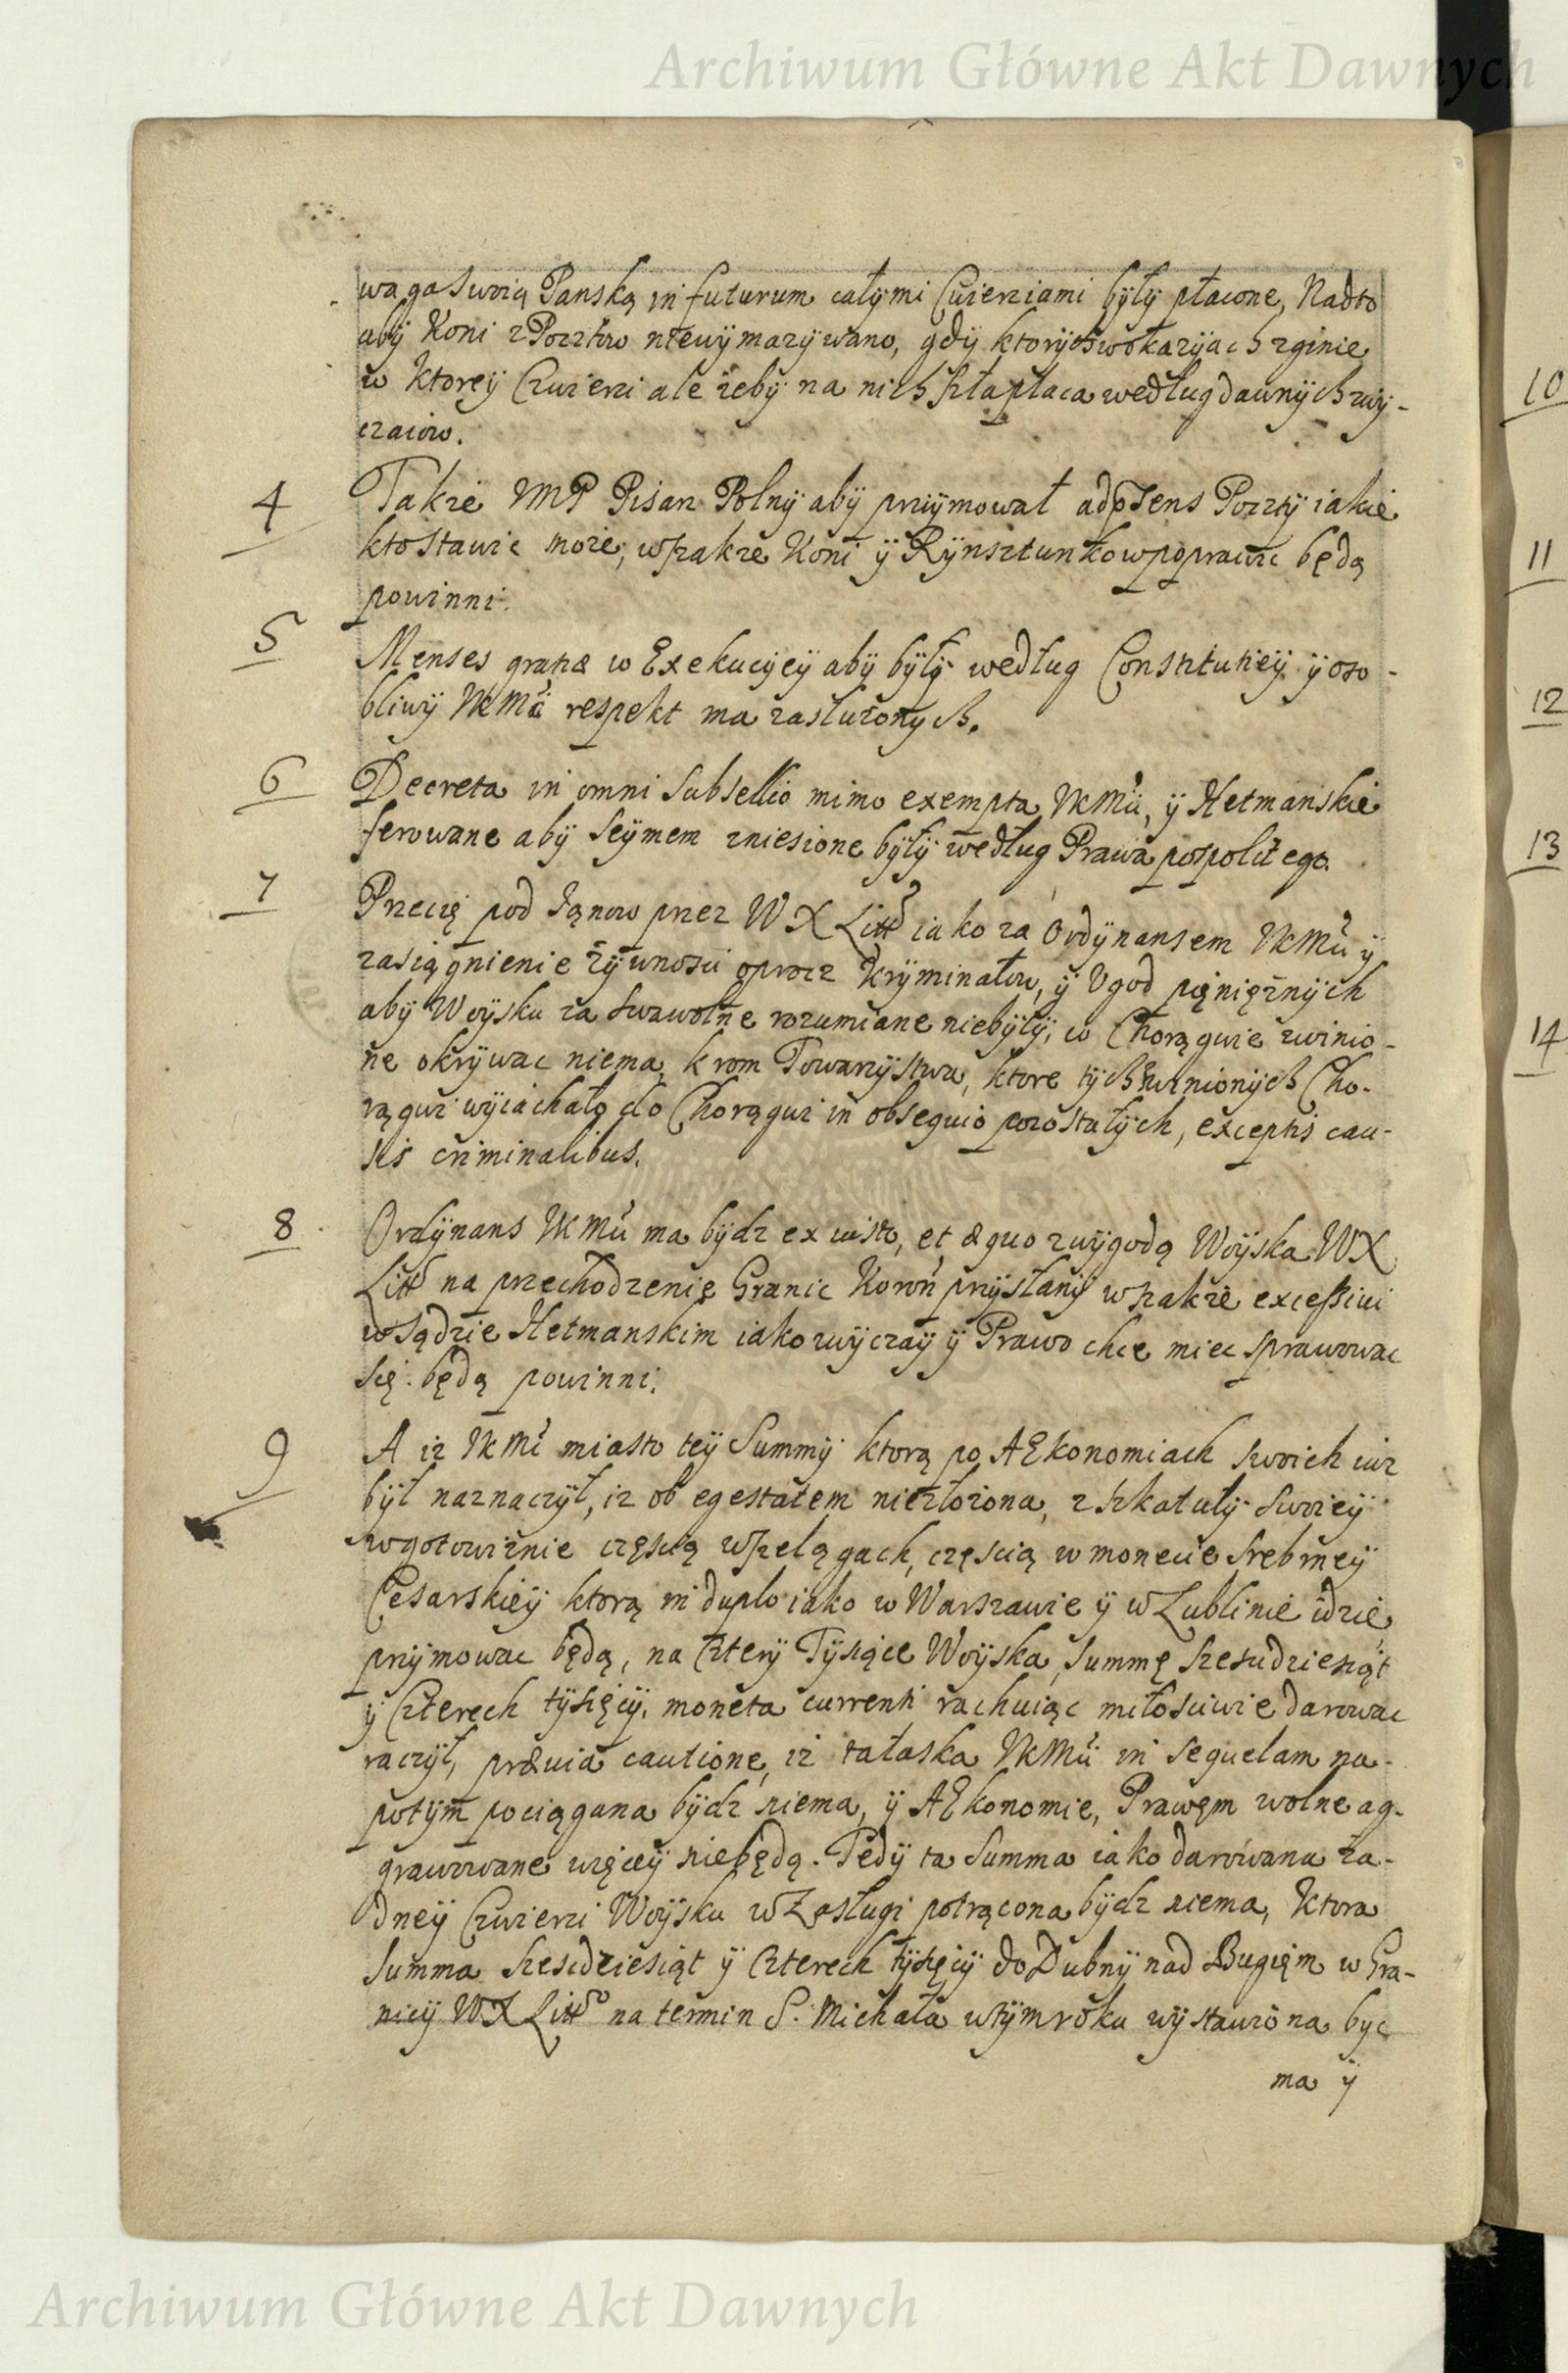 Archiwum Główne Akt Dawnych
waga swoią Panską in futurum całymi Cwierziami były płacone, Nadto
aby Koni z Pocztow niewymazywano, gdy ktorych wokazyach zginie
w ktorey Czwierci ale żeby na nich szła płaca według dawnych zwy-
czaiow.
4 Takze IMP Pisarz Polny aby przyimował ad psens Poczty iakie
kto stawic może, wszakze Koni y Rynsztunkow poprawic będą
powinni.
5 Menses gratiæ w Exekucyey aby były według Constitutiey y oso-
bliwy IKMći respekt ma zasłużonych.
6 Decreta in omni Subsellio mimo exempta IKMći, y Hetmanskie
ferowane aby Seymem zniesione były według Prawa pospolitego.
7 Przecię pod Janow przez WX Litt iako za Ordynansem IKMći y
zasiągnienie żywnosci oprocz Kryminałow, y Ugod pięniężnych
aby Woysku za swawolne rozumiane niebyły, co Chorągwie zwinio-
ne okrywac niema, krom Towarzystwa, ktore tych zwinionych Cho-
rągwi wyiachało do Chorągwi in obsequio pozostałych, exceptis cau-
sis criminalibus.
8 Ordynans IKMći ma bydz ex iusto, et æquo z wygodą Woyska WX
Litt na przechodzenie Granic Koron przysłany wszakże excessivi
w Sądzie Hetmanskim iako zwyczay y Prawo chce miec sprawowac
się będą powinni.
9 A iz IKMć miasto tey Summy ktorą po AEkonomiach swoich iuz
był naznaczył, iz ob egestatem niezłożona, z szkatuły swoiey
w gotowiznie częscią w szelągach, częscią w monecie srebrney
Cesarskiey ktorą in duplo iako w Warszawie y w Lublinie idzie
przyimowac będą, na Cztery Tysiące Woyska, Summę szescdziesiąt
y Czterech tysięcy, moneta currenti rachuiąc miłosciwie darowac
raczył, prævia cautione, iz ta łaska IKMći in sequelam na-
potym pociągana bydz niema, y AEkonomie, Prawem wolne ag-
grawowane więcey niebędą. Tedy ta Summa iako darowana ża-
dney Czwierzi Woysku w Zasługi potrącona bydz niema, Ktora
Summa szescdziesiąt y Czterech tysięcy do Dubny nad Bugiem w Gra-
nicy WX Litto na termin S. Michała w tym roku wystawiona byc
ma y
10
11
12
13
14
Archiwum Główne Akt Dawnych